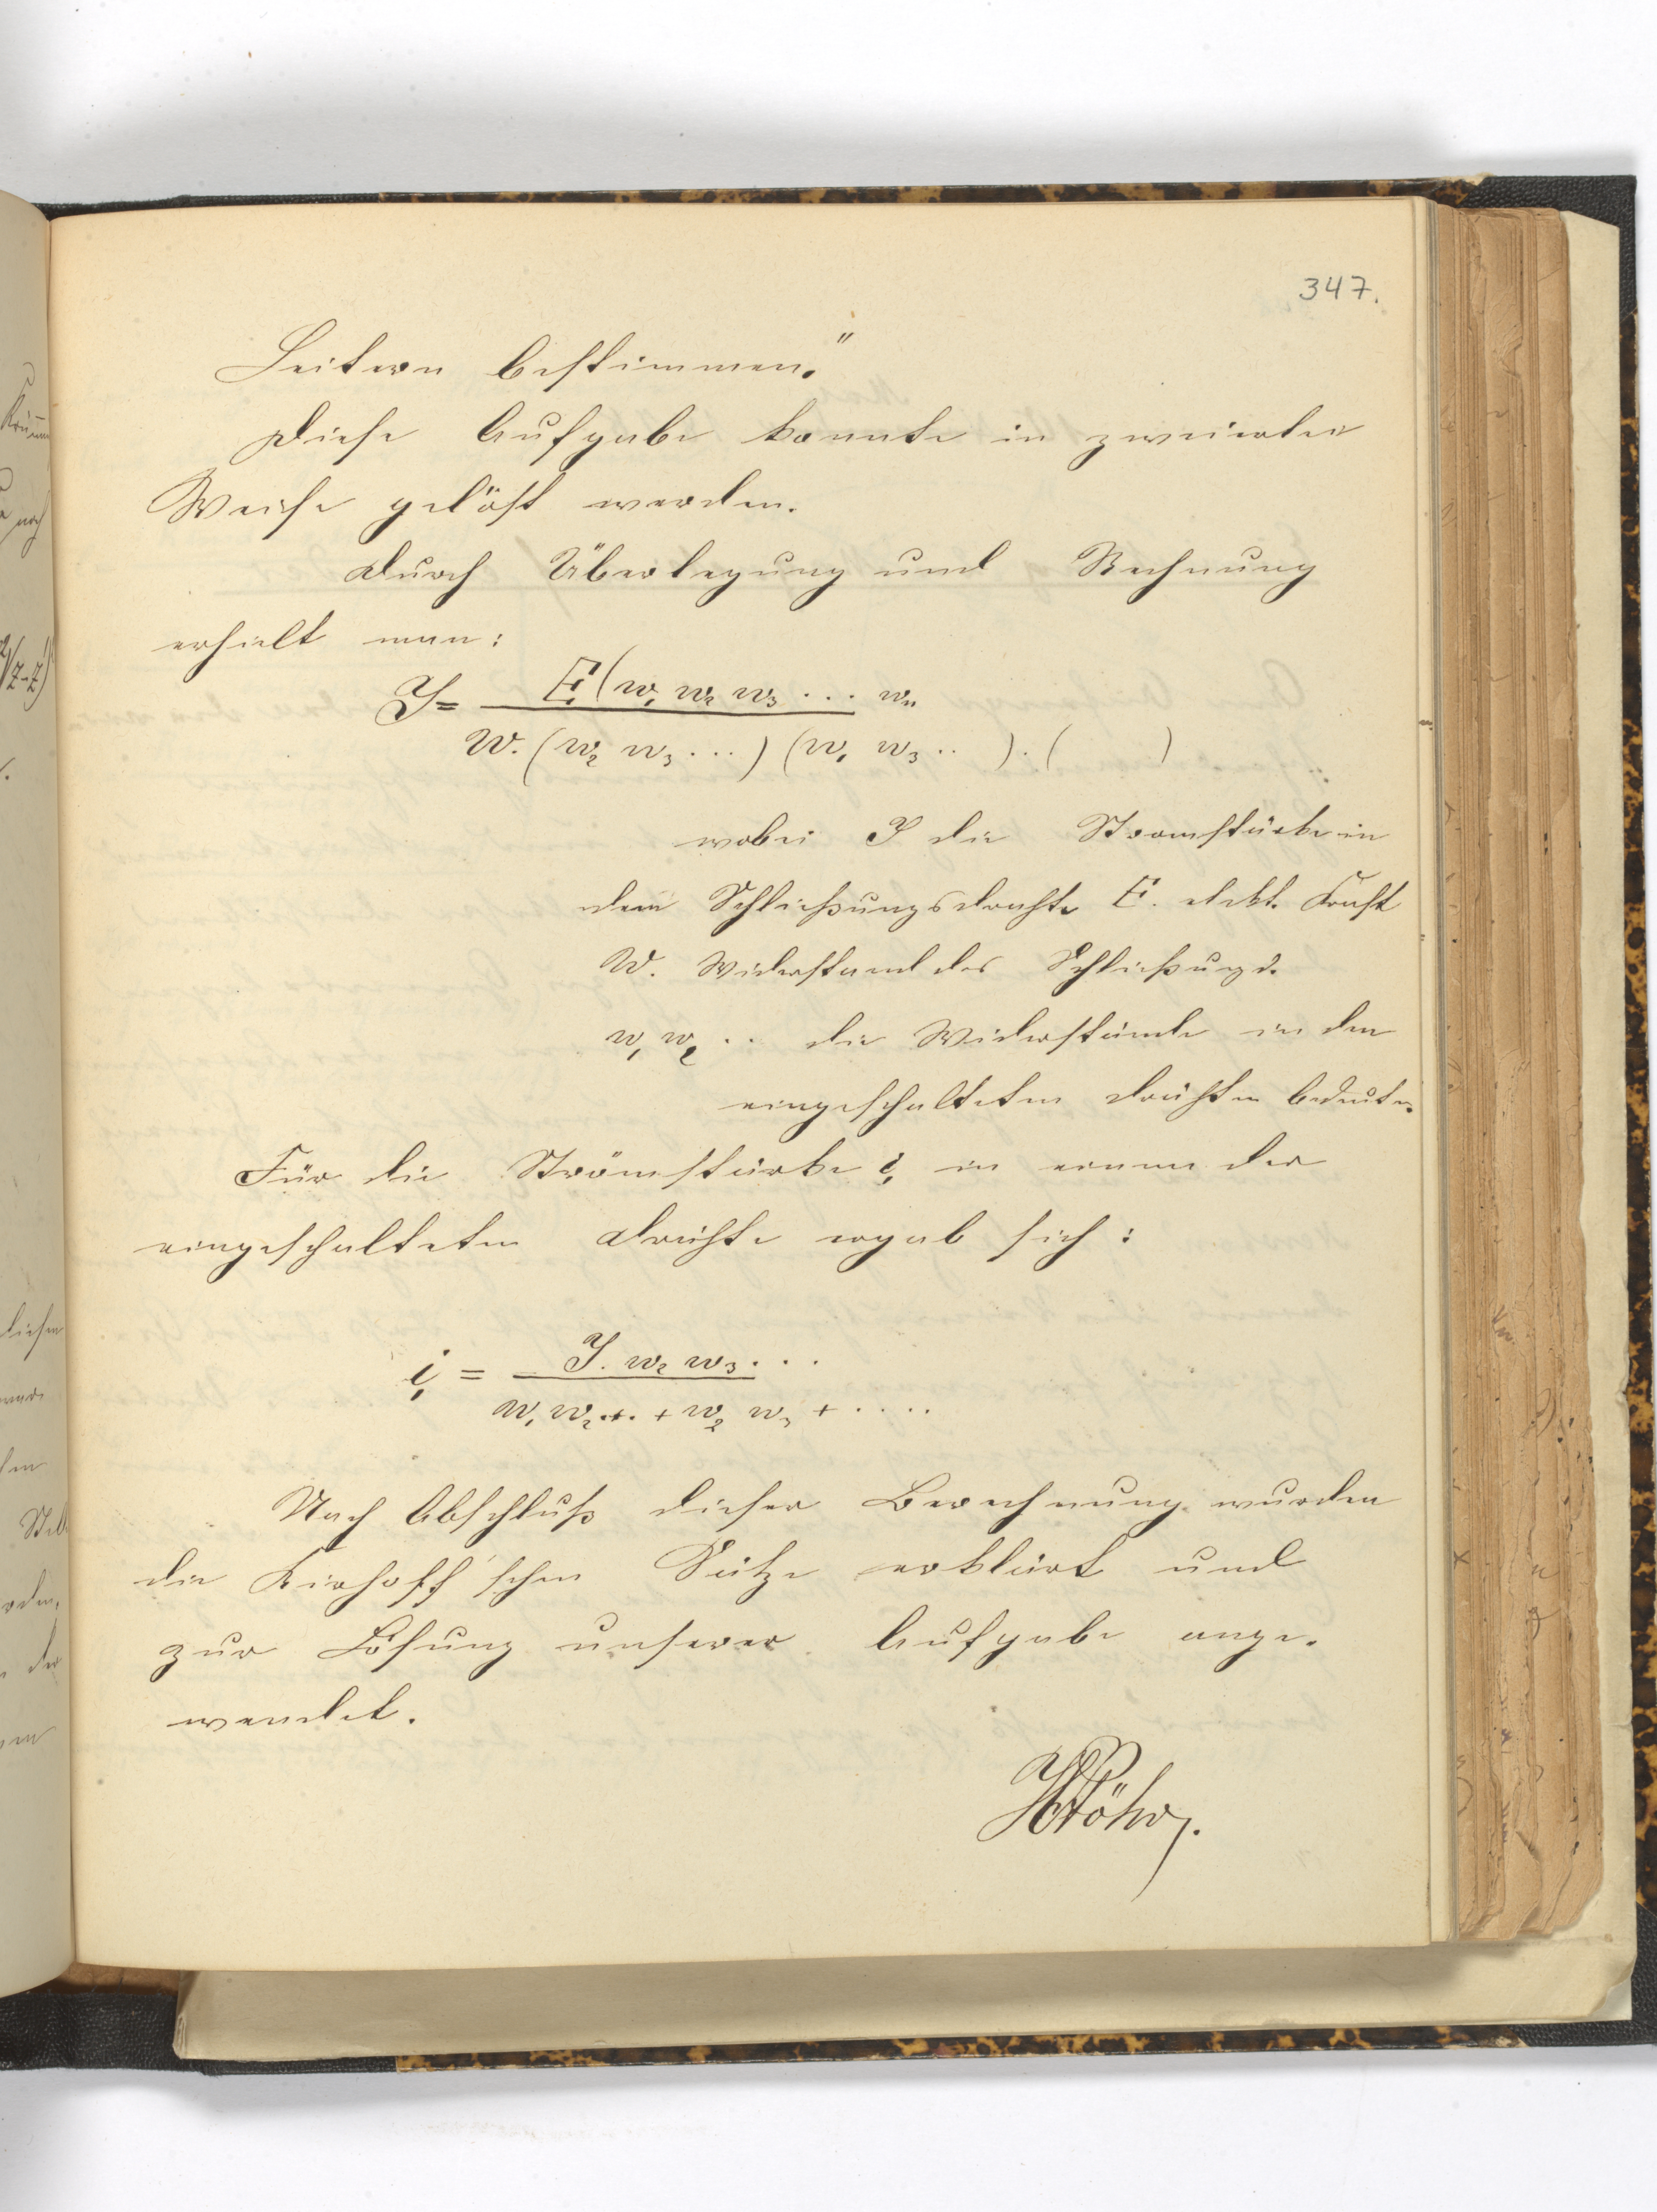 347.
Leitern bestimmen."
Diese Aufgabe konnte in zweierlei
Weise gelöst werden.
Durch Überlegung und Rechnung
erhielt man:
J = E (w₁ w₂ w₃ ... wₙ
W. (w₂ w₃ ...) (w₁ w₃ .. ) . ( )
wobei J die Stromstärke in
dem Schließungsdrahte E. elekt. Kraft
W. Widerstand des Schließungsd.
w₁ w₂ .. die Widerstände in den
eingeschalteten Drähten bedeuten.
Für die Stromstärke i₁ in einem der
eingeschalteten Drähte ergab sich:
i₁ = J. w₂ w₃ . . .
w₁ w₂ .+. + w₂ w₃ + . . . .
Nach Abschluß dieser Berechnung wurden
die Kirhoff'schen Sätze erklärt und
zur Lösung unserer Aufgabe ange-
wendet.